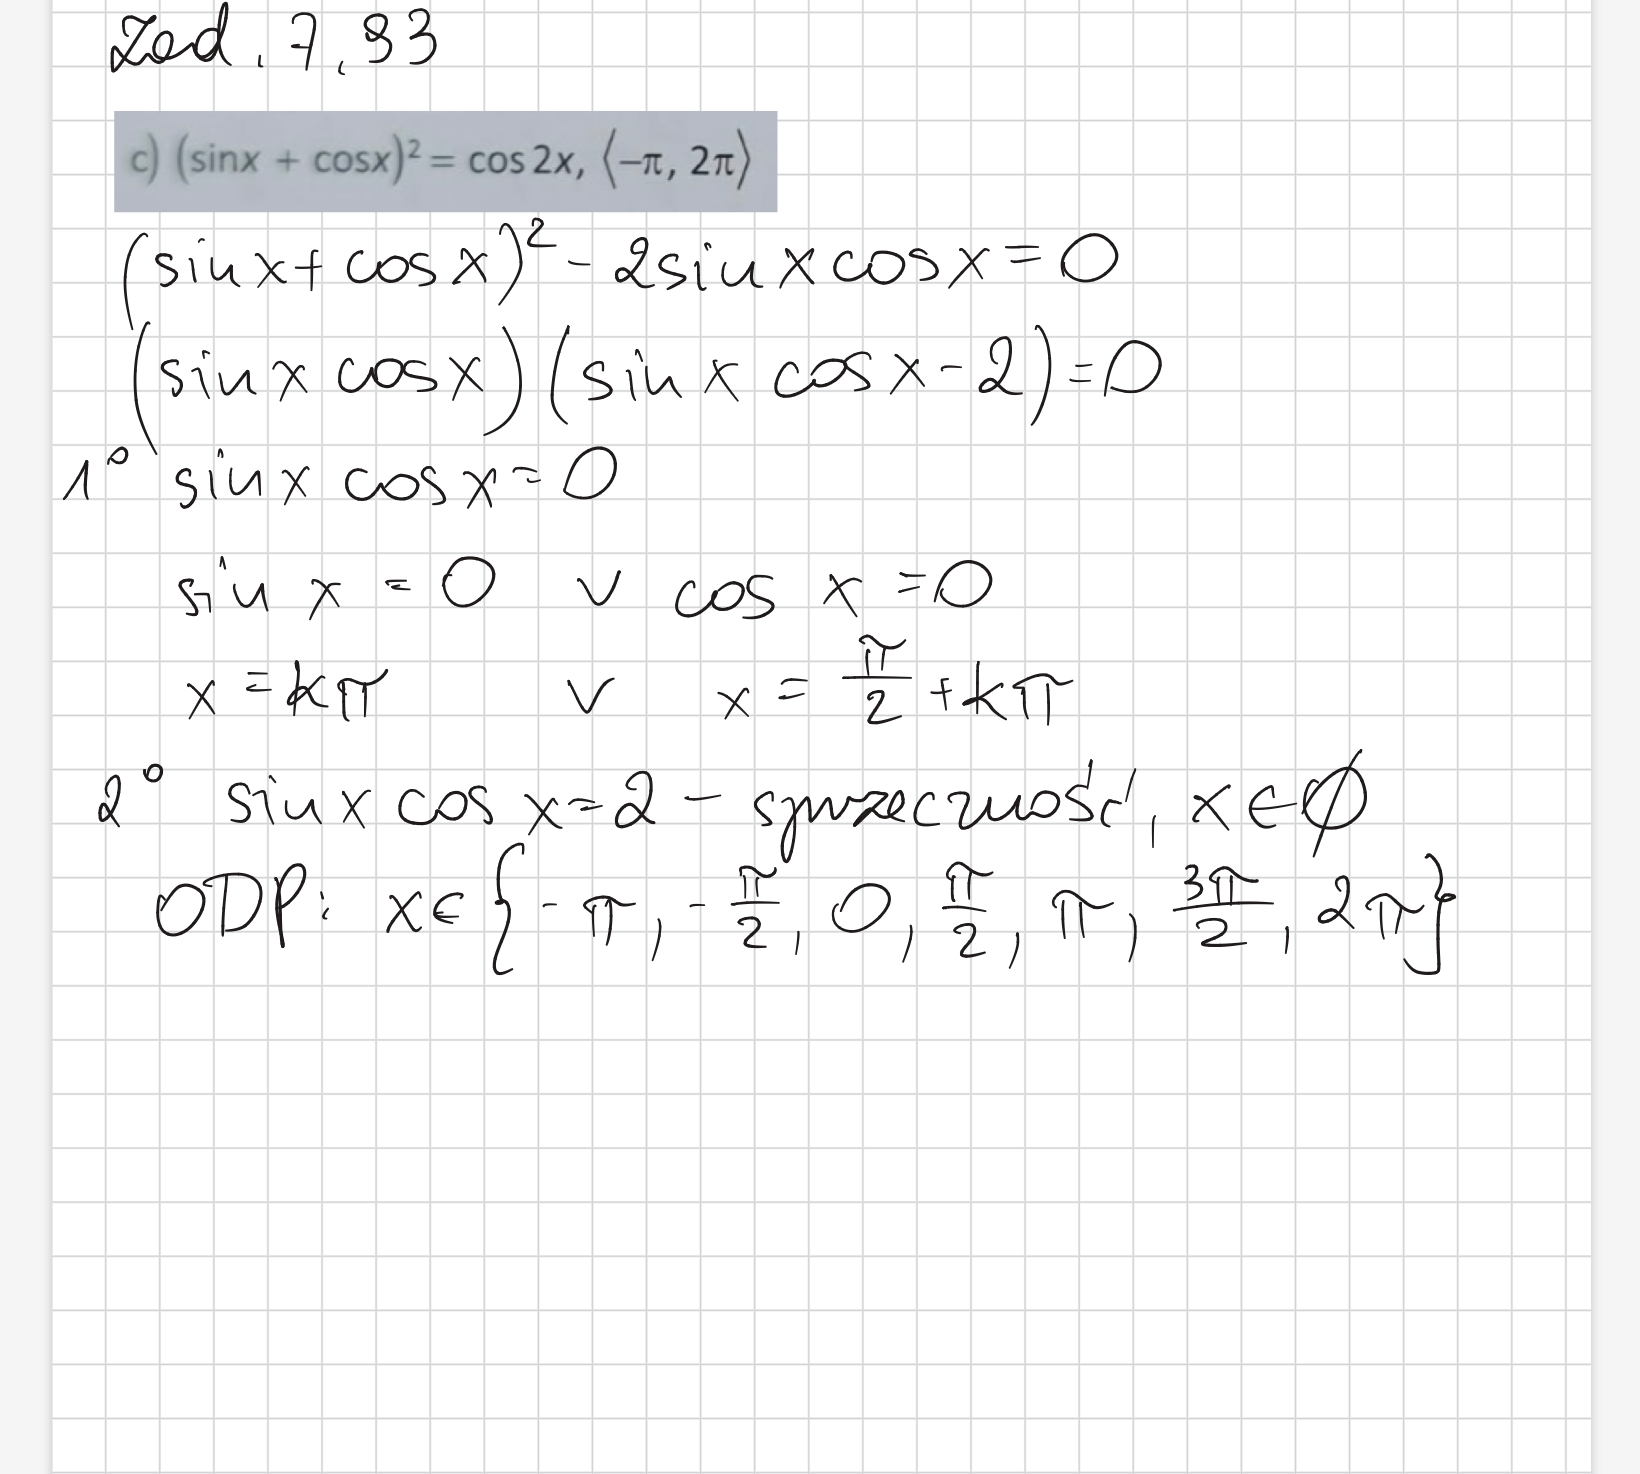 Zad. 7.93
c) (sinx + cosx)² = cos 2x, ⟨−π, 2π⟩
(sin x + cos x)² - 2 sin x cos x = 0
(sin x cos x)(sin x cos x - 2) = 0
1° sin x cos x = 0
sin x = 0 ∨ cos x = 0
x = kπ ∨ x = π/2 + kπ
2° sin x cos x = 2 - sprzeczność, x ∈ ∅
ODP: x ∈ {-π, -π/2, 0, π/2, π, 3π/2, 2π}